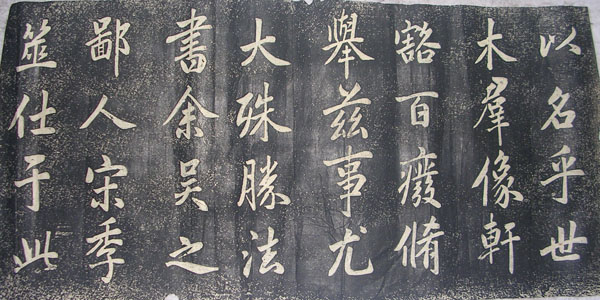 以名乎世
木羣像軒
豁百癈脩
舉茲事尤
大殊勝法
書余吴之
鄙人宋季
筮仕于此